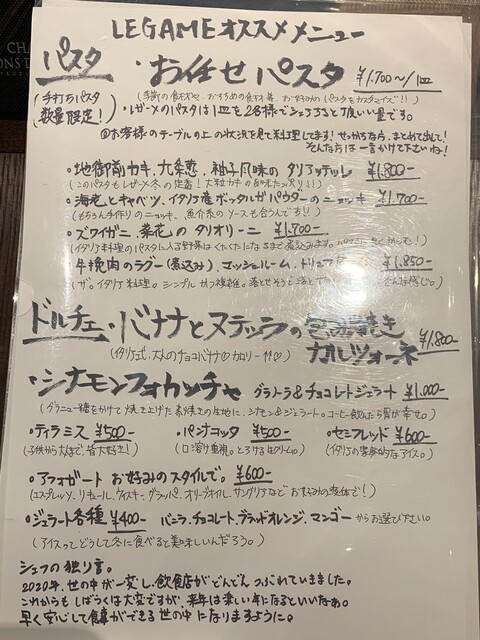 LEGAMEオススメメニュー
パスタ
・お任せパスタ ¥1,700~/1皿
(手打ちパスタ
数量限定!)
・レガーメのパスタは1皿を2名様でシェアすると丁度いい量です。
お客様のテーブルの上の状況を見て料理してます!せっかちな方、まとめて出して!
そんな方は一言かけて下さいね!
・地御前カキ、九条葱、柚子風味のタリアッテッレ ¥1,800-
(このパスタもレガーメ冬の定番!
・海老とキャベツ、イタリア産ボッタルガパウダーのニョッキ ¥1,700-
(もちろん手作りのニョッキ、魚介系のソースも合うんです!!)
・ズワイガニ、菜花のタリオリーニ ¥1,700-
(イタリア料理のパスタに入る野菜はくたくたになるまで煮込みます。
牛挽肉のラグー(煮込み)、マッシュルーム、トリュフ ¥1,850-
(ザ、イタリア料理。シンプルかつ複雑。
ドルチェ・バナナとヌテッラの
カルツォーネ ¥1,800-
(イタリア式、大人のチョコバナナ♡カロリー↑↑♡)
・シナモンフォカッチャ グラノーラ&チョコレートジェラート ¥1,000-
(グラニュー糖をかけて焼き上げた素焼きの生地に、シナモン&ジェラート。コーヒー飲んだら胃が幸せ。)
・ティラミス ¥500- ・パンナコッタ ¥500- ・セミフレッド ¥600-
(子供から大人まで皆大好き!) (口溶け重視。とろける生クリーム。) (イタリアの家庭的なアイス。)
・アフォガート お好みのスタイルで。 ¥600-
(エスプレッソ、リキュール、ウイスキー、グラッパ、オリーブオイル、サングリアなどお好みの液体で!)
・ジェラート各種 ¥400- バニラ、チョコレート、ブラッドオレンジ、マンゴーからお選び下さい。
(アイスってどうして冬に食べると美味しいんだろう。)
シェフの独り言。
2020年、世の中が一変し、飲食店がどんどんつぶれていきました。
これからもしばらくは大変ですが、来年は楽しい年になるといいなぁ。
早く安心して食事ができる世の中になりますように。